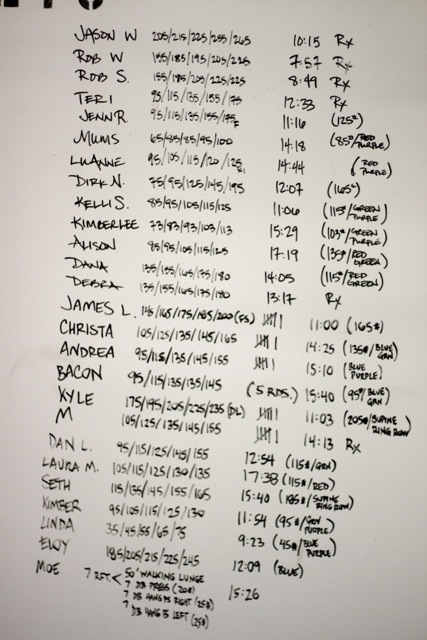 JASON W 205/215/225/255/265 10:15 Rx
ROB W 155/185/195/205/225 7:57 Rx
ROB S. 155/185/205/225/225 8:49 Rx
TERI 95/115/135/155/175 12:33 Rx
JENN R. 95/115/135/155/175 11:16 (125#)
MUMS 65/85/85/95/100 14:18 (85#/RED PURPLE)
LUANNE 95/105/115/120/125 14:44 (RED PURPLE)
DIRK N. 75/95/125/145/195 12:07 (165#)
KELLI S. 85/95/105/115/125 11:06 (115#/GREEN PURPLE)
KIMBERLEE 73/83/93/103/113 15:29 (103#/GREEN PURPLE)
ALISON 85/95/105/115/125 17:19 (135#/RED GREEN)
DANA 135/155/165/175/180 14:05 (115#/RED GREEN)
DEBRA 135/155/165/175/180 13:17 Rx
JAMES L. 145/165/175/185/200 (FS) 11:00 (165#)
CHRISTA 105/125/135/145/165 14:25 (135#/BLUE GRN)
ANDREA 95/115/135/145/155 15:10 (BLUE PURPLE)
BACON 95/115/135/135/145 (5 RDS.) 15:40 (95#/BLUE GRN)
KYLE 175/195/205/225/235 (DL) 11:03 (205#/SUPINE RING ROW)
M 105/125/135/145/155 14:13 Rx
DAN L. 95/115/125/145/155 12:54 (115#/GRN)
LAURA M. 105/115/125/130/135 17:38 (115#/RED)
SETH 115/135/145/155/165 15:40 (185#/SUPINE RING ROW)
KIMBER 95/105/115/125/130 11:54 (95#/GRN PURPLE)
LINDA 35/45/55/65/75 9:23 (45#/BLUE PURPLE)
ELOY 185/205/215/225/245 12:09 (BLUE)
MOE 7 RFT. < 50' WALKING LUNGE 15:26
7 DB PRESS (20#)
7 DB HANG PS RIGHT (25#)
7 DB HANG PS LEFT (25#)